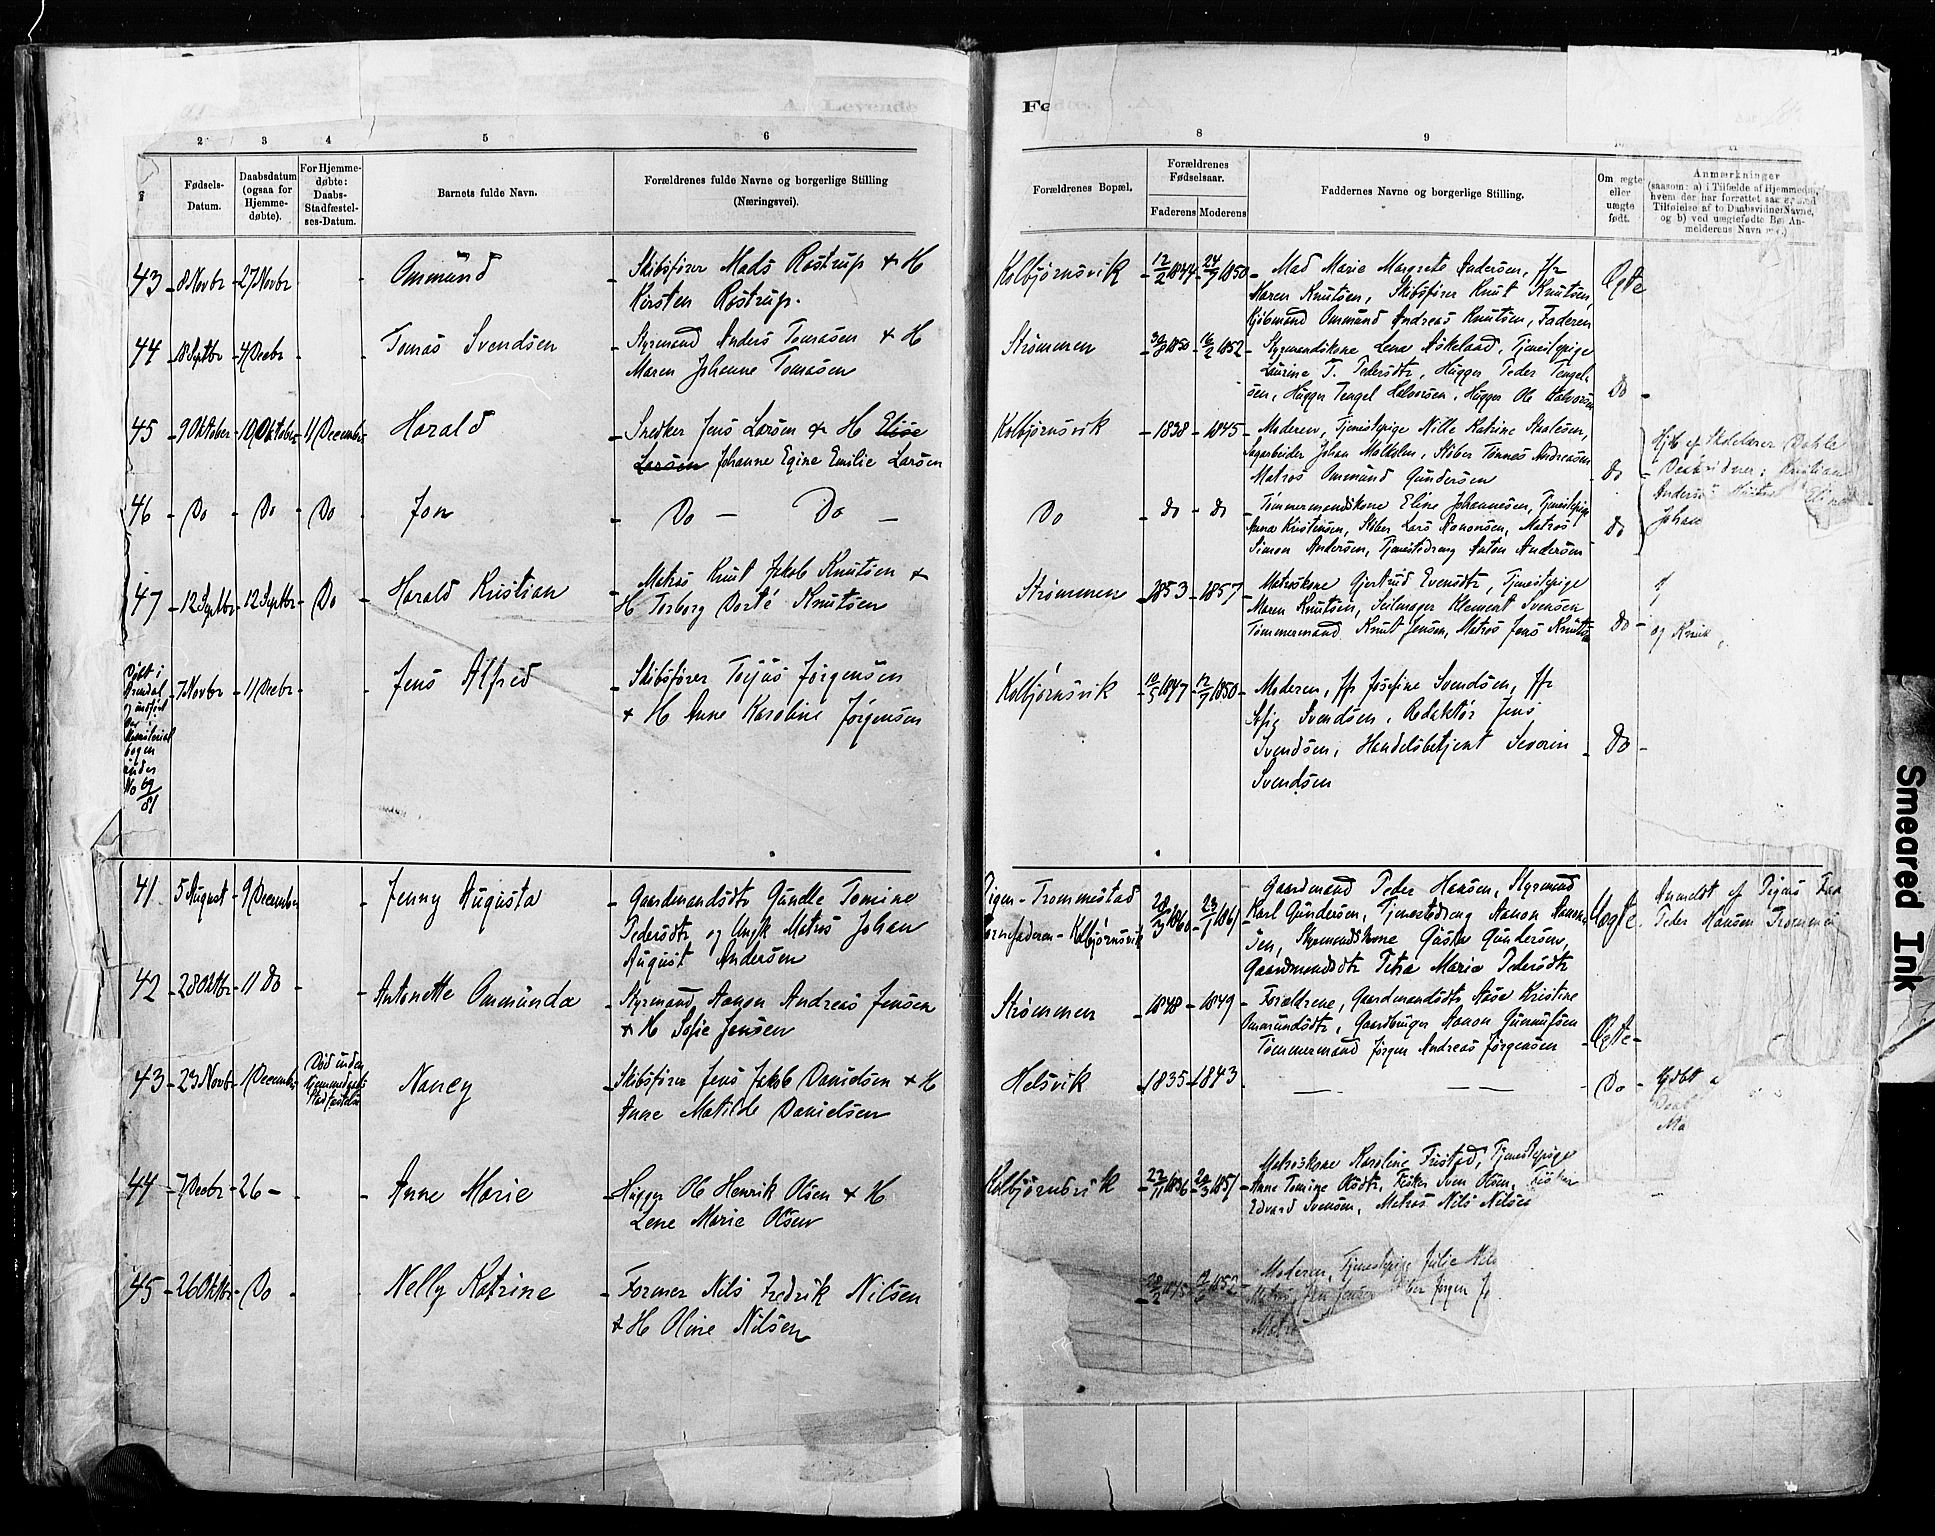 A. Levende
Fø
2 3 4 5 6
Fødsels-
Datum.
Daabsdatum
(ogsaa for
Hjemme-
døbte).
For Hjemme-
døbte:
Daabs-
Stadfæstel-
ses-Datum.
Barnets fulde Navn.
Forældrenes fulde Navne og borgerlige Stilling
(Næringsvei).
43 8 Novbr 27 Novbr Ommund Skibsfører Mads Rostrup & H
Kirsten Rostrup.
44 18 Septbr 4/Decbr Tomas Svendsen Styrmand Anders Tomasen & H
Maren Johanne Tomasen
45 9 Oktober 10 Oktober 11/December Harald Snedker Jens Larsen & H Elise
Larsen Johanne Egine Emilie Larsen
46 Do Do Do Jon Do — Do —
47 12 Septbr 12 Septbr Do Harald Kristian Matros Knut Jakob Knutsen &
H Torborg Dorté Knutsen
Døbt i
Arendal
og indført
der i
Ministerial
bogen
under
No 69/81
7 Novbr 11/Decbr Jens Alfred Skibsfører Terjus Jørgensen
& H Anne Karoline Jørgensen
41 5 August 9/December Jenny Augusta Gaardmandsdtr Gundle Tomine
Pedersdtr og Ungk Matros Johan
August Andersen
42 28 Oktbr 11 Do Antonette Ommunda Styrmand Aanon Andreas Jensen
& H Sofie Jensen
43 23 Novbr 1/December Død inden
Stadfæstelse
Nancy Skibsfører Jens Jakob Danielsen & H
Anne Matilde Danielsen
44 7/Decbr 26 — Anne Marie Hugger Ole Henrik Olsen & H
Lene Marie Olsen
45 26 Oktbr Do Nelly Katrine Former Nils Fredrik Nilsen
& H Oline Nilsen
8 9
Forældrenes Bopæl.
Forældrenes
Fødselsaar.
Faderens Moderens
Faddernes Navne og borgerlige Stilling.
Om ægte
eller
uægte
født.
Anmærkninger
(saasom: a) i Tilfælde af Hjemmedaab
hvem der har forrettet
Tilføielse af to Daabsvidner Navne,
og b) ved uægtefødte An-
melderens Navn
Kolbjørnsvik 12/2 1844 24/9 1850 Mad Marie Margrete Andersen, Jfr
Maren Knutsen, Skibsfører Knut Knutsen,
Kjøbmand Ommund Andreas Knutsen, Faderen
Ægte
Strømmen 30/8 1850 16/2 1852 Styrmandskone Lena Askeland, Tjenestepige
Laurine T. Pedersdtr, Hugger Peder Tengel-
sen, Hugger Tengel Halvorsen, Hugger Ole Halvorsen
Do
Kolbjørnsvik 1838 1845 Moderen, Tjenestepige Nille Katrine Staalesen,
Sagarbeider Johan Molholm, Støber Tønnes Andreasen
Matros Ommund Gundersen
Do
Hjb af Skolelærer Dahle
Daabsvidner: Kristian
Andersen Hustru Eline
Johan
Do do do Tømmermandskone Eline Johannesen, Tjenestepige
Anna Kristensen, Støber Lars Aanonsen, Matros
Simon Andersen, Tjenestedreng Anton Andersen
Do
Strømmen 1853 1857 Matroskone Gjertrud Evensdtr, Tjenestepige
Maren Knutsen, Seilmager Klement Svensen
Tømmermand Knut Jensen, Matros Jens Knutsen
Do
og Knut
Kolbjørnsvik 10/5 1847 12/7 1850 Moderen, Jfr Josefine Svendsen, Jfr
Svendsen, Redaktør Jens
Svendsen, Handelsbetjent Severin
Svendsen
Do
Pigen - Trommestad
Barnefaderen - Kolbjørnsvik
28/3 1860 23/1 1861
Gaardmand Peder Hansen, Styrmand
Karl Gundersen, Tjenestedreng Aanon Aanon-
sen, Styrmandskone Gusta Gundersen,
Gaardmandsdtr Petra Maria Pedersdtr
Uægte.
Anmeldt af Pigens Fader
Peder Hansen Trommestad
Strømmen 1848 1849 Forældrene, Gaardmandsdtr Aase Kristine
Ommundsdtr, Gaardbruger Aanon Gunnufsen
Tømmermand Jørgen Andreas Jørgensen
Ægte
Helsvik 1835 1843 — — — Do
Hjdbt a
Daab
Ma
Kolbjørnsvik 22/11 1856 22/3 1851 Matroskone Karoline Fristad, Tjenestepige
Anne Tomine Olsdtr, Fisker Sven Olsen, Fisker
Edvard Svensen, Matros Nils Nilsen
28/2 1845 12/6 1852
Moderen, Tjenestepige Julie Nils
Matros Jens Jensen Jørgen J
Matros
Smeared Ink